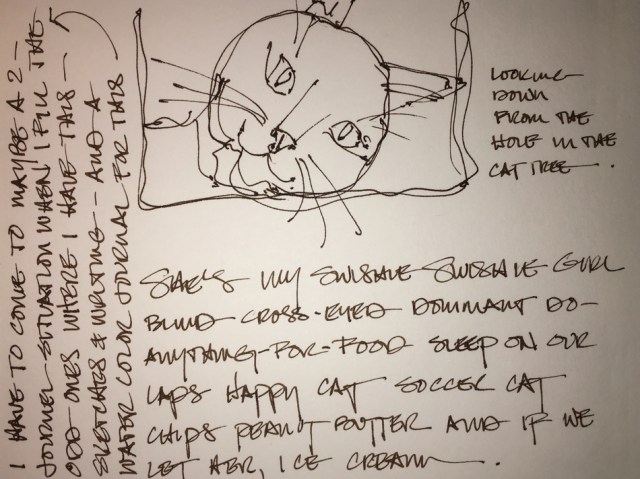 I HAVE TO COME TO MAYBE A 2-
JOURNEL-SITUATION WHEN I FILL THE
ODD-ONES WHERE I HAVE-THIS-
SKETCHES & WRITING-AND A
WATER COLOR JOURNAL FOR THIS
LOOKING
DOWN
FROM THE
HOLE IN THE
CAT TREE.
SHE'S MY SWISHIE-SWISHIE-GIRL
BLIND-CROSS-EYED DOMINANT DO-
ANYTHING-FOR-FOOD SLEEP ON OUR
LAPS HAPPY CAT SOCCER CAT
CHIPS PEANUT BUTTER AND IF WE
LET HER, ICE CREAM.